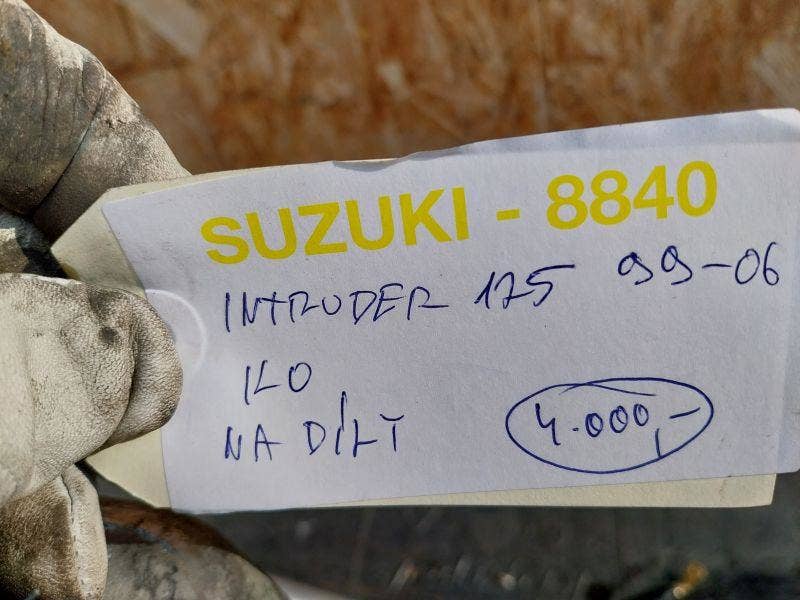 SUZUKI - 8840
INTRUDER 125 99-06
KO
NA DÍLY
4.000,-